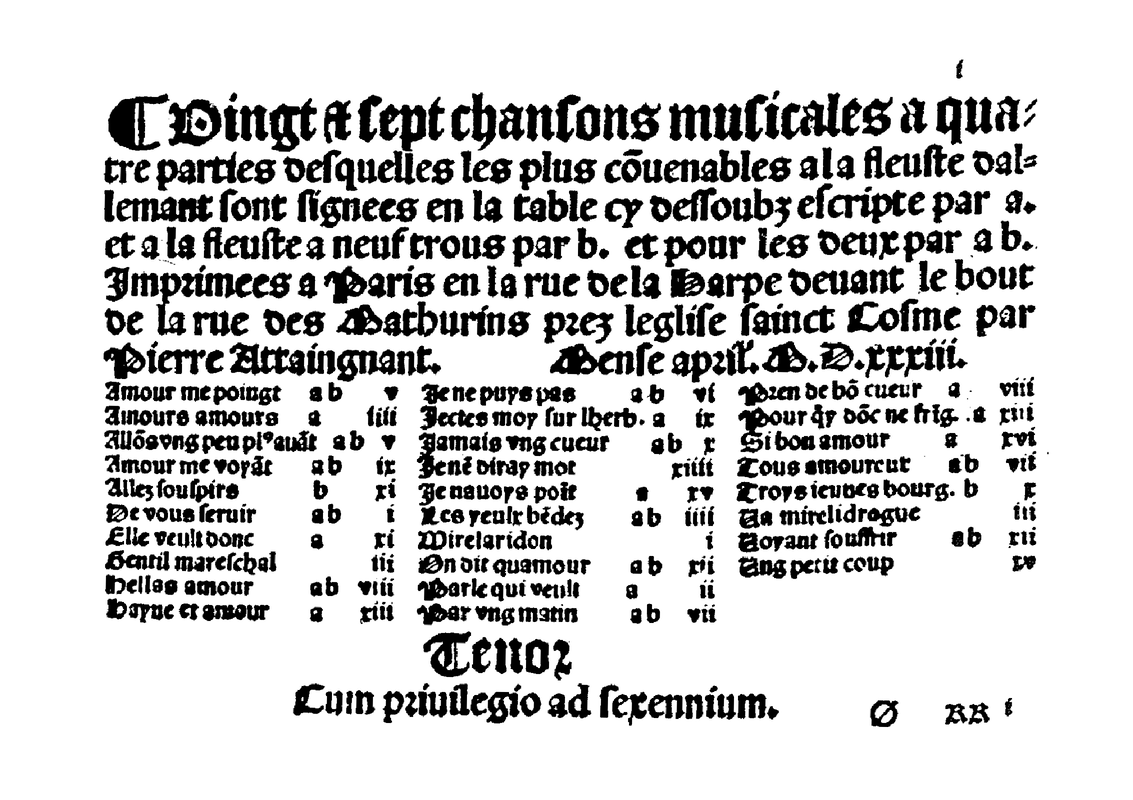 i
¶ Vingt & sept chansons musicales a qua-
tre parties desquelles les plus cōuenables a la fleuste dal-
lemant sont signees en la table cy dessoubz escripte par a.
et a la fleuste a neuf trous par b. et pour les deux par a b.
Imprimees a Paris en la rue de la Harpe deuant le bout
de la rue des Mathurins prez leglise sainct Cosme par
Pierre Attaingnant. Mense april. M. D. xxxiii.
Amour me poingt a b v
Amours amours a iiii
Allōs vng peu plꝰ auāt a b v
Amour me voyāt a b ix
Allez souspirs b xi
De vous seruir a b i
Elle veult donc a xi
Gentil mareschal iii
Hellas amour a b viii
Hayne et amour a xiii
Je ne puys pas a b vi
Jectes moy sur lherb. a ix
Jamais vng cueur a b x
Jenē diray mot xiiii
Je nauoys poīt a xv
Les yeulx bēdez a b iiii
Mirelaridon i
On dit quamour a b xii
Parle qui veult a ii
Par vng matin a b vii
Pren de bō cueur a viii
Pour q̄y dōc ne frīg. a xiii
Si bon amour a xvi
Tous amoureux a b vii
Troys ieunes bourg. b x
Va mirelidrogue iii
Voyant souffrir a b xii
Vng petit coup xv
Tenor
Cum priuilegio ad sexennium.
Ø RR i